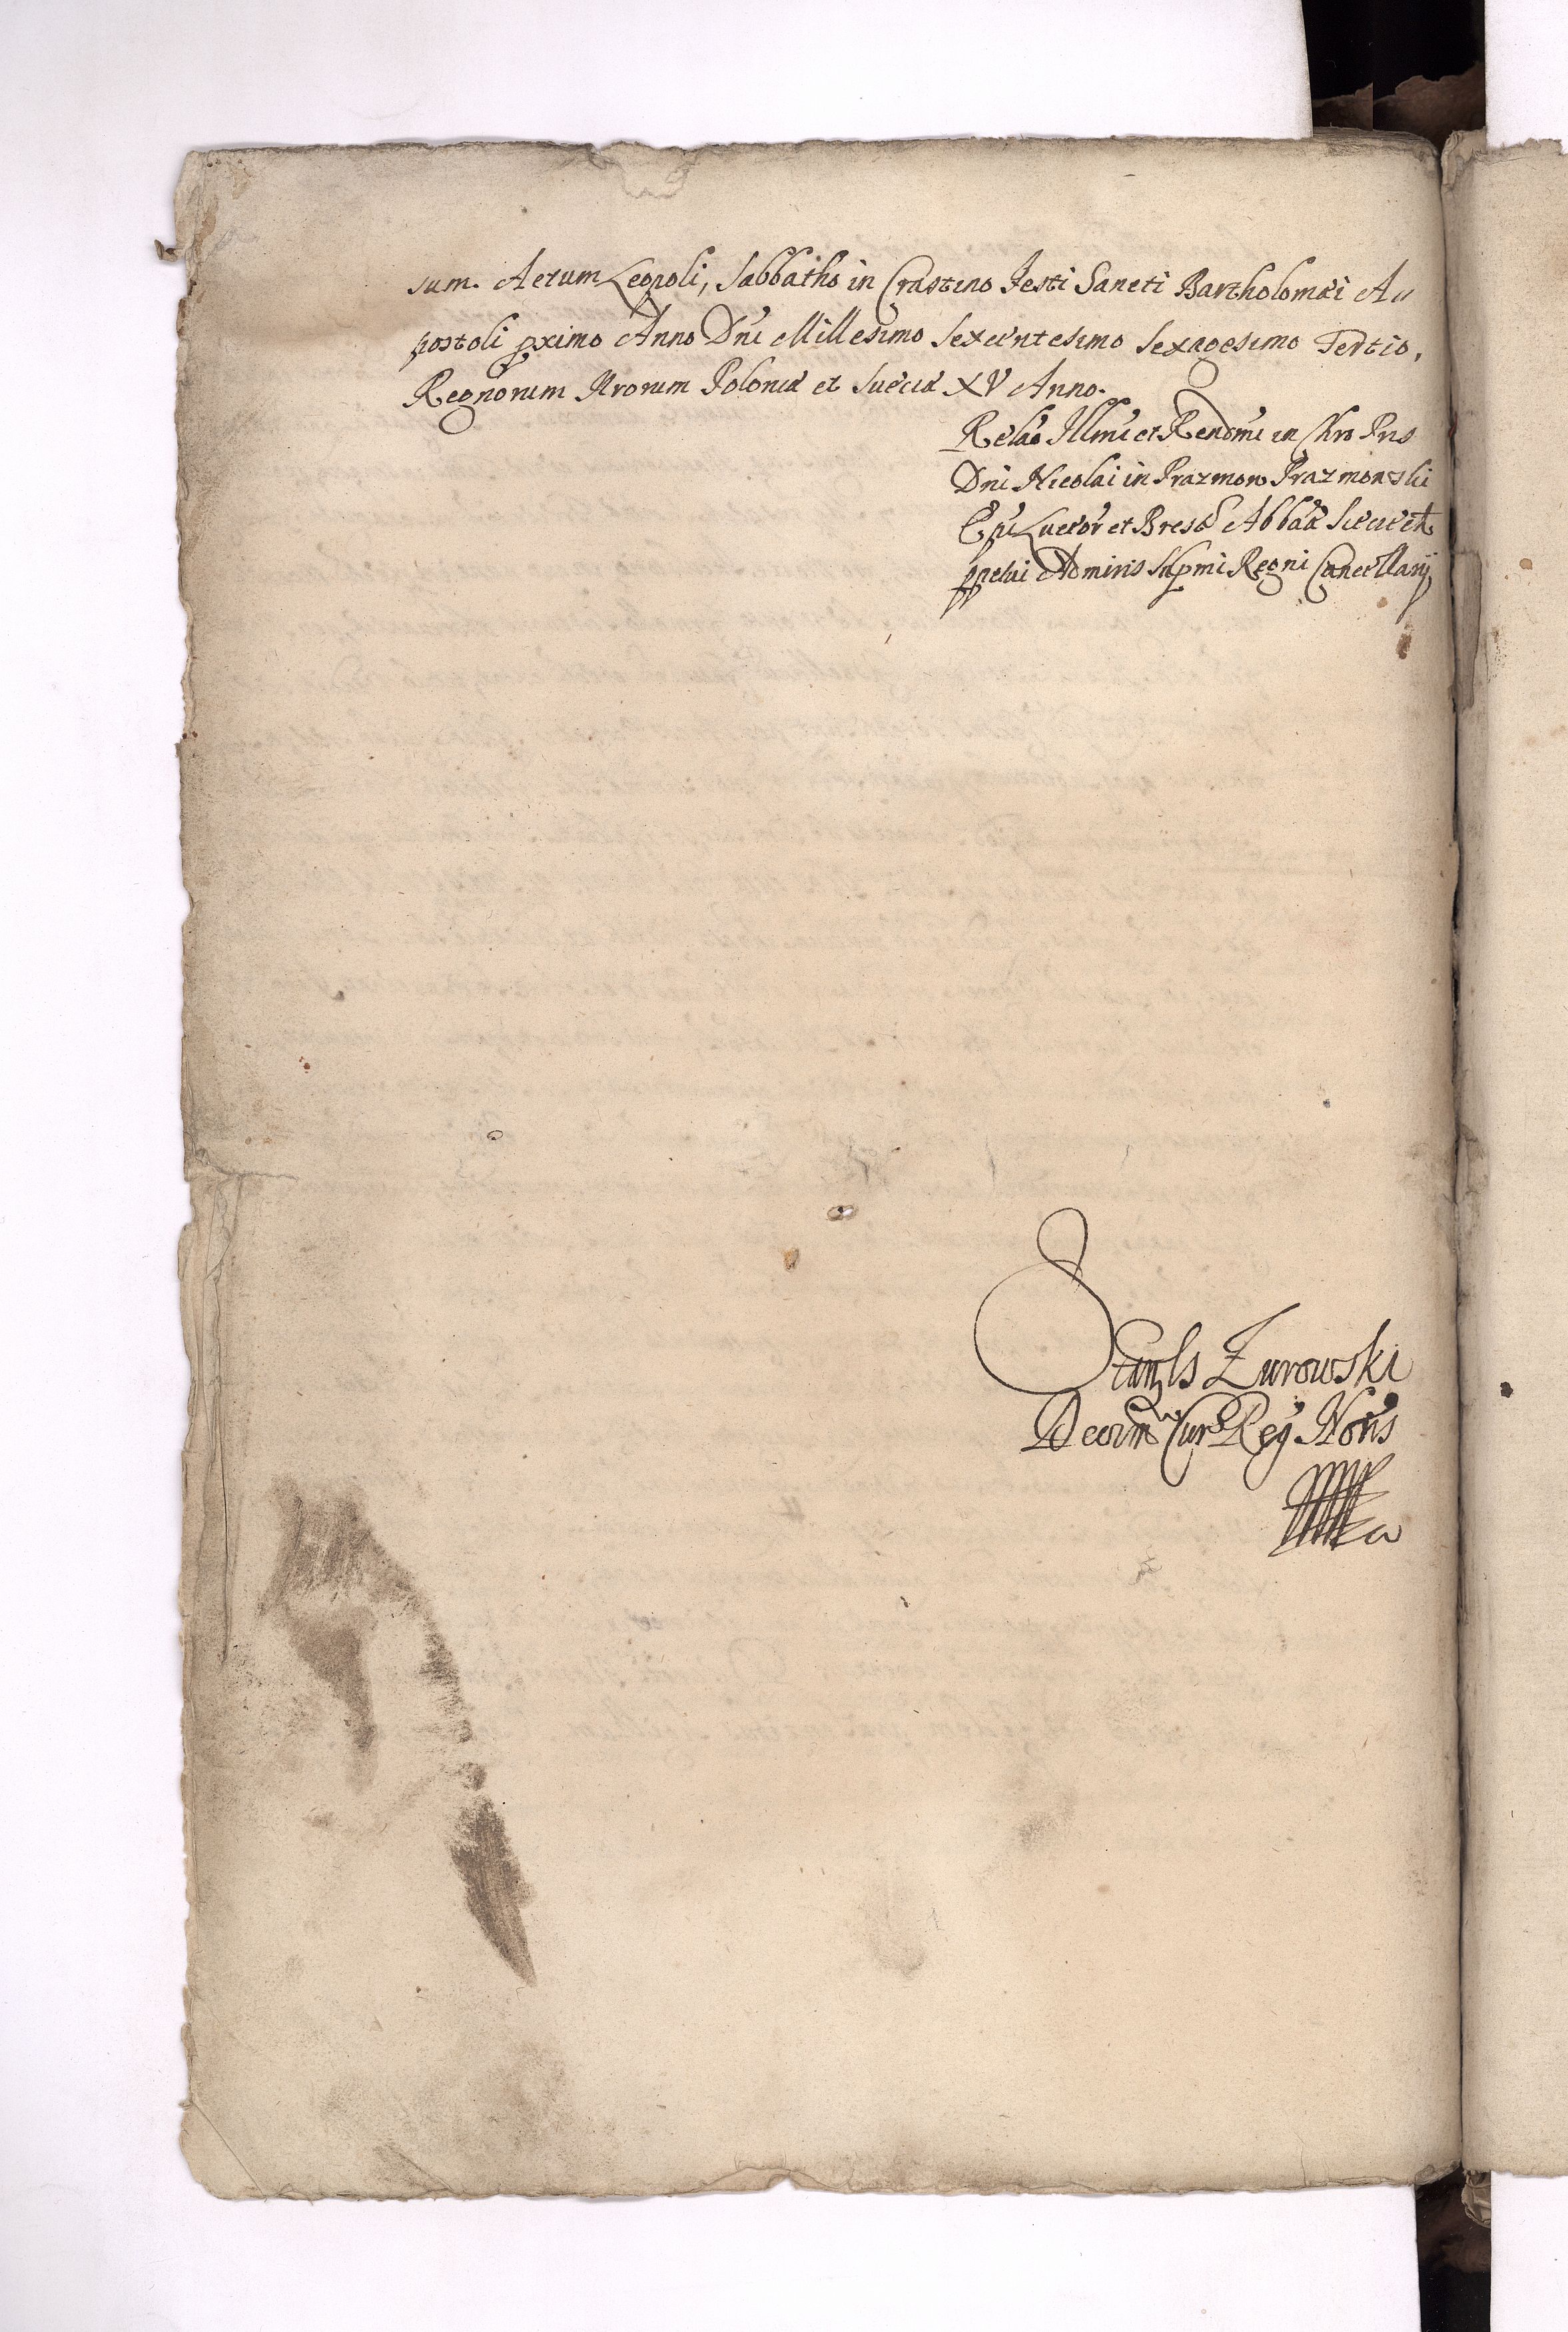 sum. Actum Leopoli, Sabbatho in Crastino Festi Sancti Bartholomæi A„
postoli pximo Anno Dni Millesimo Sexcentesimo Sexagesimo Tertio,
Regnorum Nrorum Poloniæ et Sueciæ XV Anno.
Relao Illmi et Rendmi in Chro Pris
Dni Nicolai in Prazmow Prazmowski
Epi Luceor et Brest Abbæ Sieciech
ppetui Adminis Supmi Regni Cancellarij
Stanls Zurowski
Decrm Cur Reg Noris